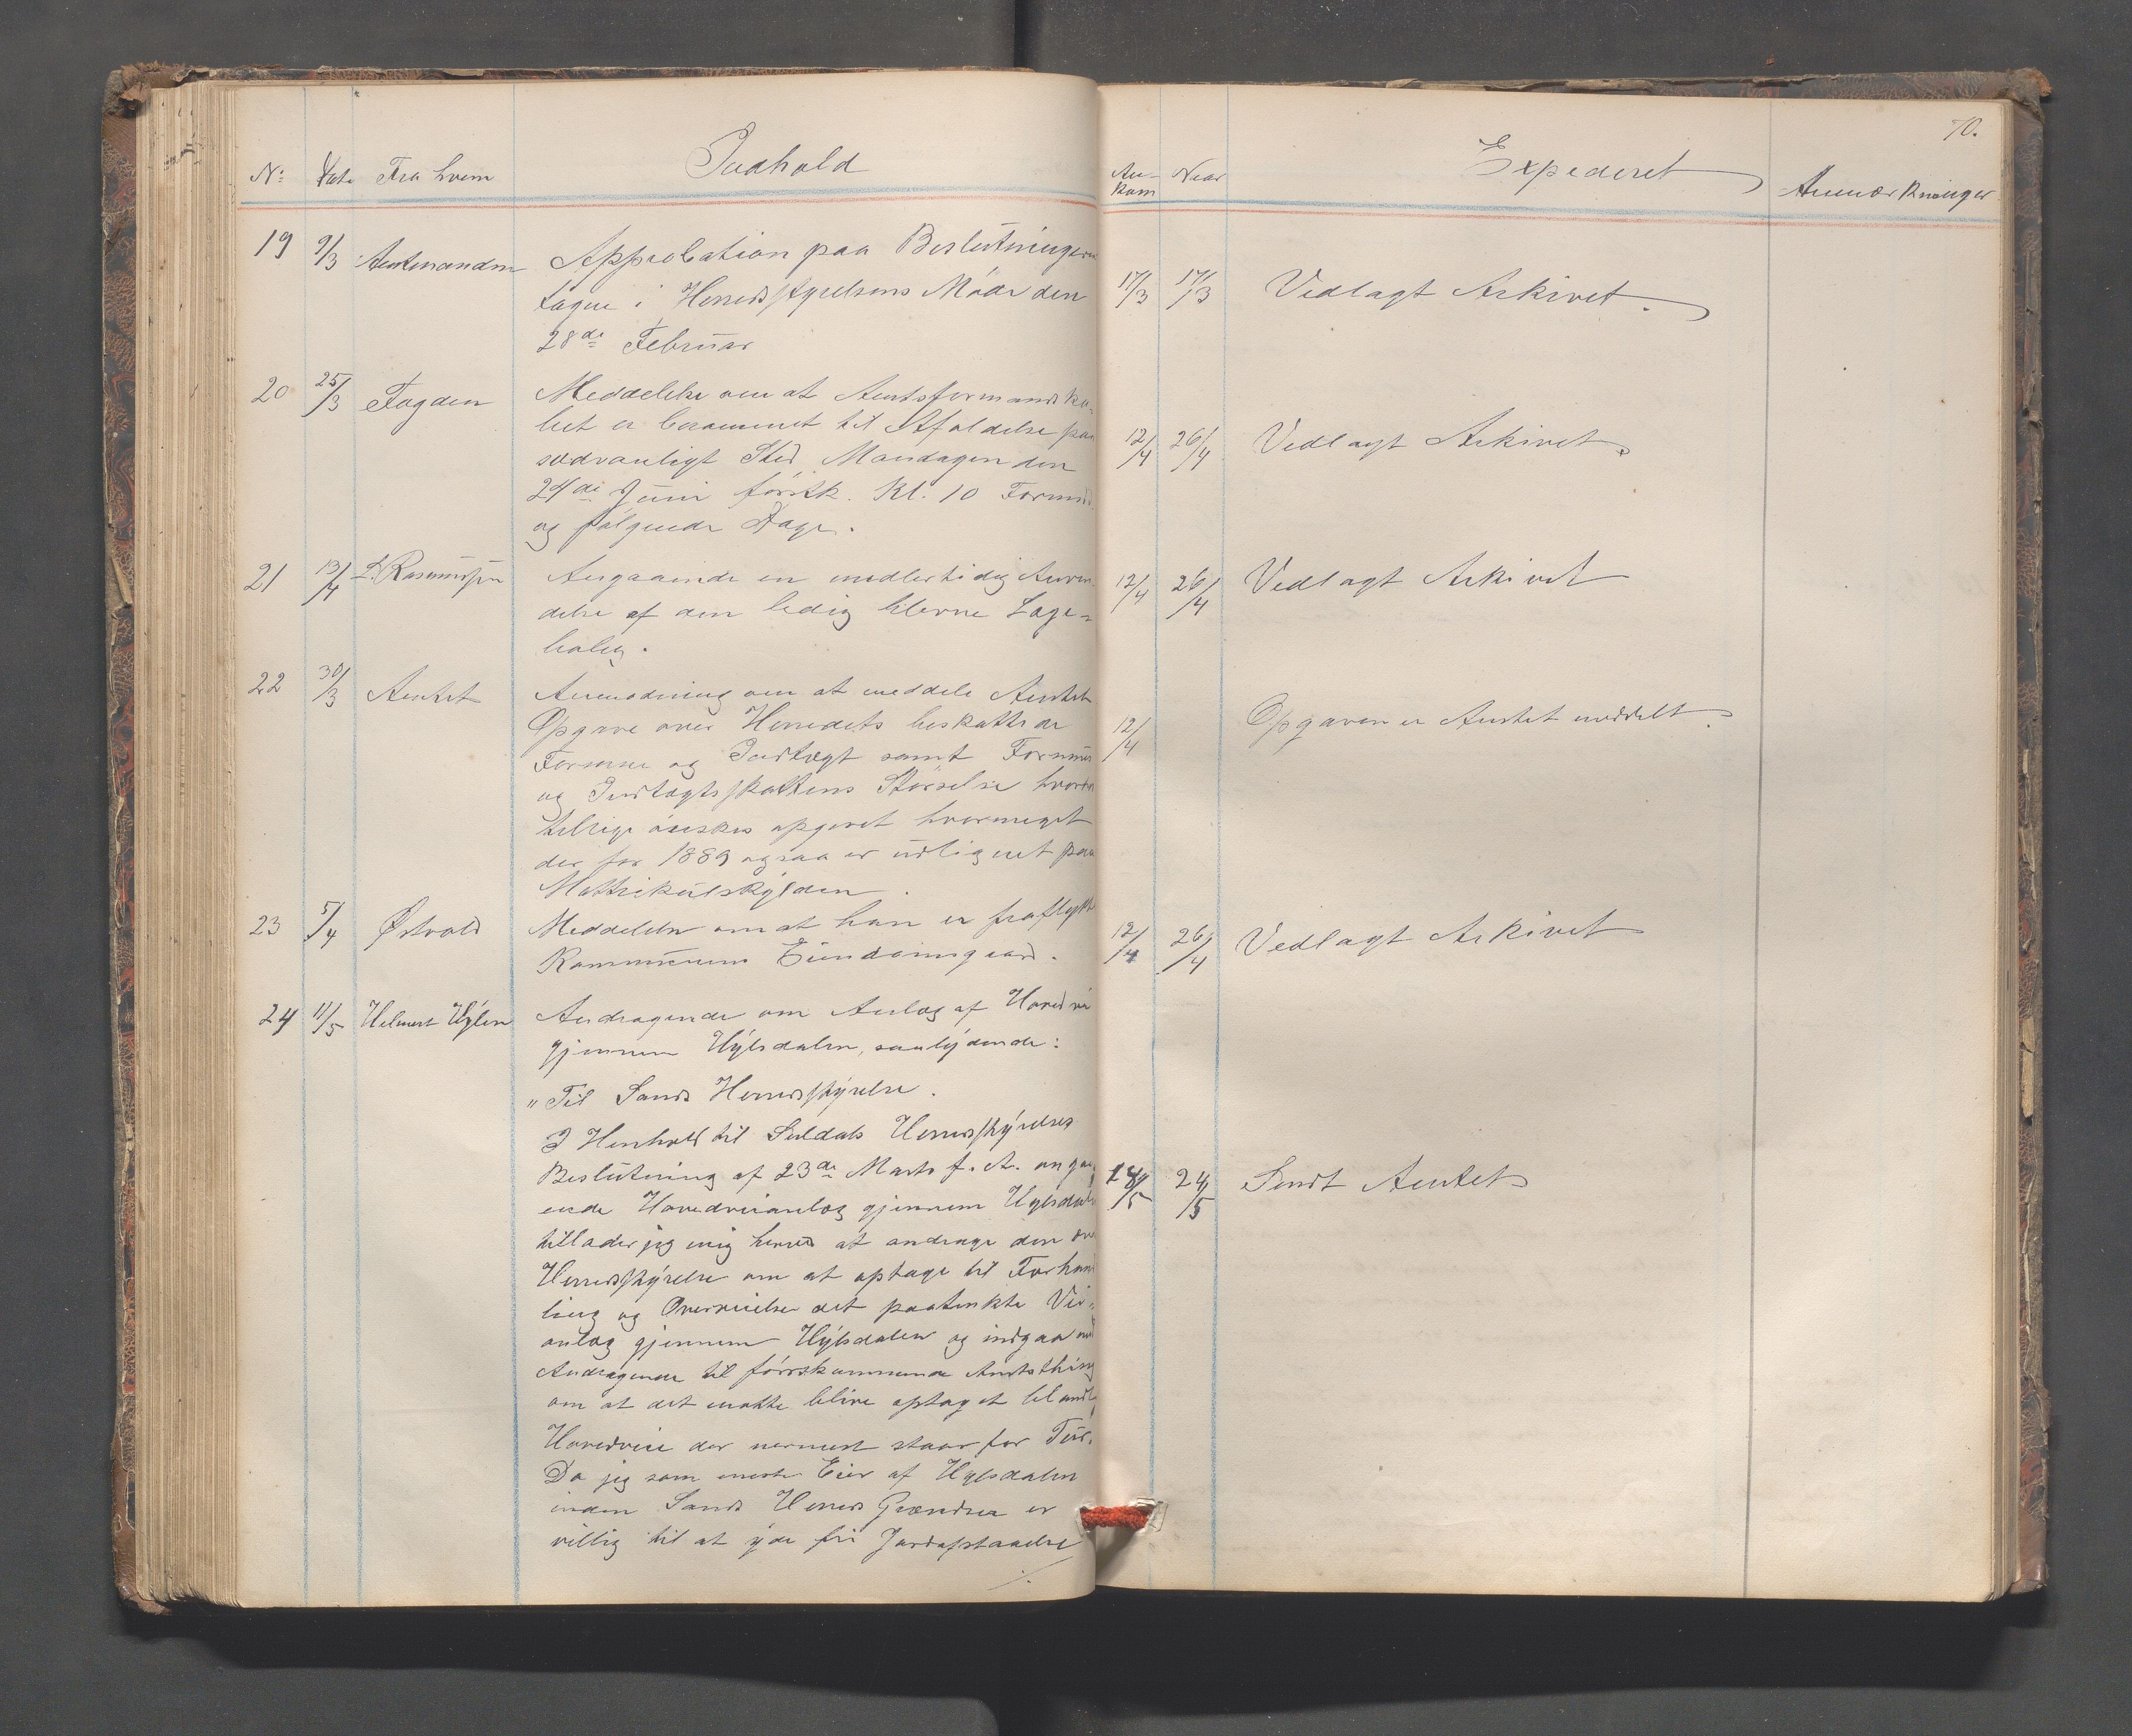 70.
No: Date Fra hvem Indhold An-
kom Naar Expederet Anmærkninger
19 9/3 Amtmanden Approbation paa Beslutningern
tagne i Herredsstyrelsens Møde den 17/3 17/3 Vedlagt Arkivet.
28de Februar
20 25/3 Fogden Meddelelse om at Amtsformandska-
bet er berammet til Afholdelse paa 12/4 26/4 Vedlagt Arkivet.
sædvanligt Sted Mandagen den
24de Juni førstk. Kl. 10 Formid.
og følgende Dage.
21 13/4 L. Rasmussen Angaaende en midlertidig Anven- 12/4 26/4 Vedlagt Arkivet
delse af den ledig blevne Læge-
bolig.
22 30/3 Amtet Anmodning om at meddele Amtet
Opgave over Herredets beskattede 12/4 Opgaven er Amtet meddelt.
Formue og Indtægt samt Formues
og Indtægtsskattens Størrelse hvorhos
tillige ønskes opgivet hvormeget
der for 1889 ogsaa er udlignet paa
Mattrikulskylden.
23 5/4 Østvold Meddelelse om at han er fraflyttet 12/4 26/4 Vedlagt Arkivet
Kommunens Eiendomsgaard.
24 11/5 Helmert Hylen Andragende om Anlæg af Hovedvei
gjennem Hylsdalen, saalydende:
"Til Sands Herredsstyrelse.
I Henhold til Suldals Herredsstyrelses
Beslutning af 23de Marts f. A. angaa- 14/5 24/5 Sendt Amtet
ende Hovedveianlæg gjennem Hylsdalen
tillader jeg mig herved at andrage den
Herredsstyrelse om at optage til Forhand
ling og Overveielse det paatænkte Vei-
anlæg gjennem Hylsdalen og indgaa med
Andragende til førstkommende Amtsthing
om at det maatte blive optaget blandt
Hovedveie der nærmest staar for Tur.
Da jeg som eneste Eier af Hylsdalen
inden Sands Herreds Grændser er
villig til at yde fri Jordafstaaelse